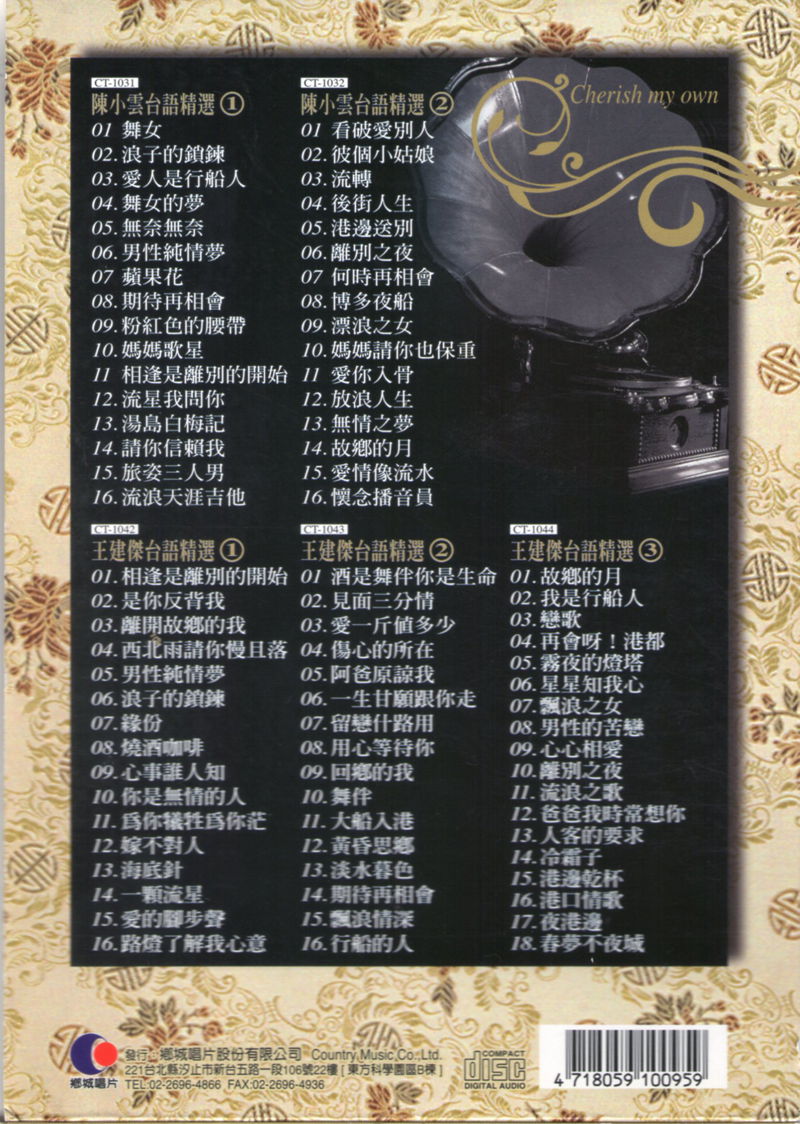 Cherish my own
CT-1031
陳小雲台語精選①
01 舞女
02.浪子的鎖鍊
03.愛人是行船人
04.舞女的夢
05.無奈無奈
06.男性純情夢
07 蘋果花
08.期待再相會
09.粉紅色的腰帶
10.媽媽歌星
11 相逢是離別的開始
12.流星我問你
13.湯島白梅記
14.請你信賴我
15.旅姿三人男
16.流浪天涯吉他
CT-1032
陳小雲台語精選②
01 看破愛別人
02.彼個小姑娘
03.流轉
04.後街人生
05.港邊送別
06.離別之夜
07 何時再相會
08.博多夜船
09.漂浪之女
10.媽媽請你也保重
11 愛你入骨
12.放浪人生
13.無情之夢
14.故鄉的月
15.愛情像流水
16.懷念播音員
CT-1042
王建傑台語精選①
01.相逢是離別的開始
02.是你反背我
03.離開故鄉的我
04.西北雨請你慢且落
05.男性純情夢
06.浪子的鎖鍊
07.緣份
08.燒酒咖啡
09.心事誰人知
10.你是無情的人
11.為你犧牲為你茫
12.嫁不對人
13.海底針
14.一顆流星
15.愛的腳步聲
16.路燈了解我心意
CT-1043
王建傑台語精選②
01 酒是舞伴你是生命
02.見面三分情
03.愛一斤值多少
04.傷心的所在
05.阿爸原諒我
06.一生甘願跟你走
07.留戀什路用
08.用心等待你
09.回鄉的我
10.舞伴
11.大船入港
12.黃昏思鄉
13.淡水暮色
14.期待再相會
15.飄浪情深
16.行船的人
CT-1044
王建傑台語精選③
01.故鄉的月
02.我是行船人
03.戀歌
04.再會呀！港都
05.霧夜的燈塔
06.星星知我心
07.飄浪之女
08.男性的苦戀
09.心心相愛
10.離別之夜
11.流浪之歌
12.爸爸我時常想你
13.人客的要求
14.冷霜子
15.港邊乾杯
16.港口情歌
17.夜港邊
18.春夢不夜城
鄉城唱片
發行：鄉城唱片股份有限公司 Country Music Co., Ltd.
221台北縣汐止市新台五路一段106號22樓 [ 東方科學園區B棟 ]
TEL:02-2696-4866 FAX:02-2696-4936
COMPACT
disc
DIGITAL AUDIO
4 718059 100959